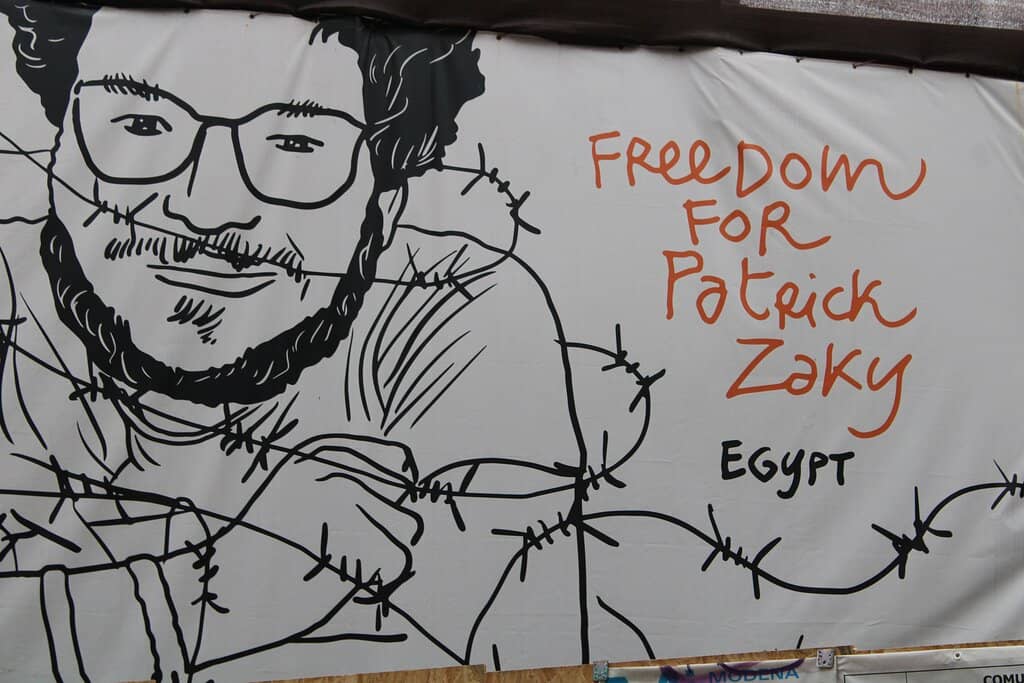 FreeDom
FOR
Patrick
Zaky
EGYPT
MODENA
COMU